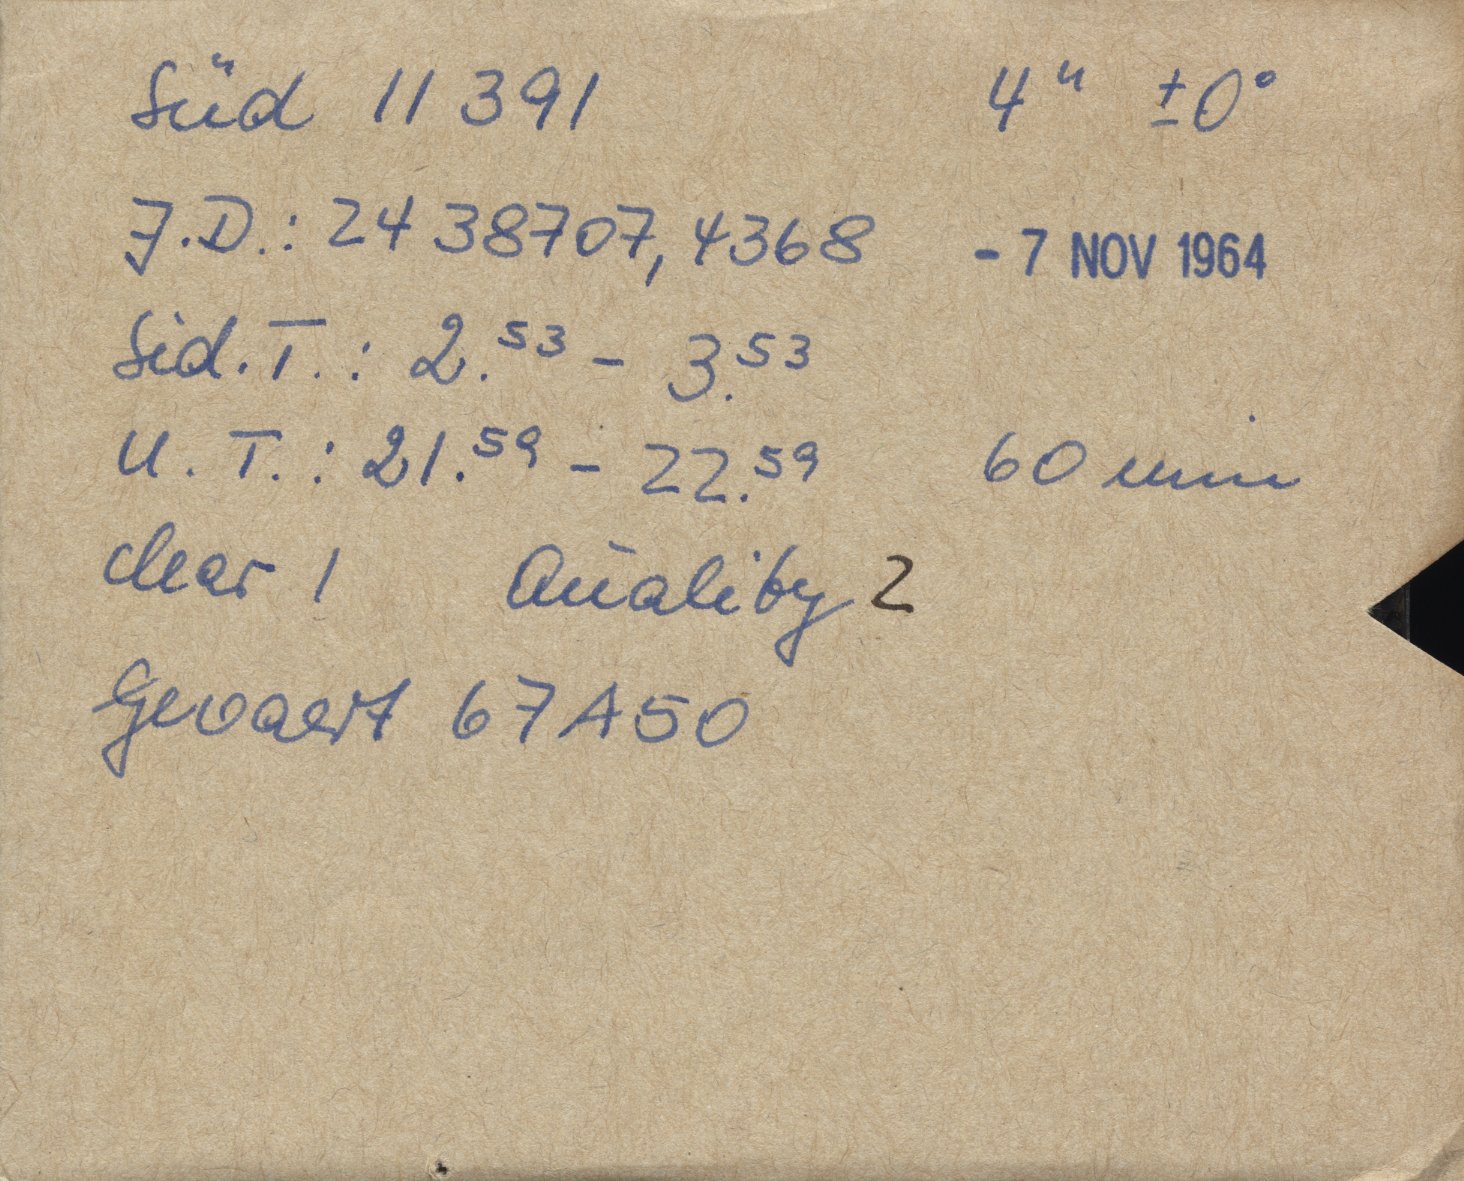 Süd 11391 4ʰ ±0°
J.D.: 2438707,4368 - 7 NOV 1964
Sid. T.: 2.⁵³ - 3.⁵³
U. T.: 21.⁵⁹ - 22.⁵⁹ 60 min
clear 1 Quality 2
Gevaert 67A50